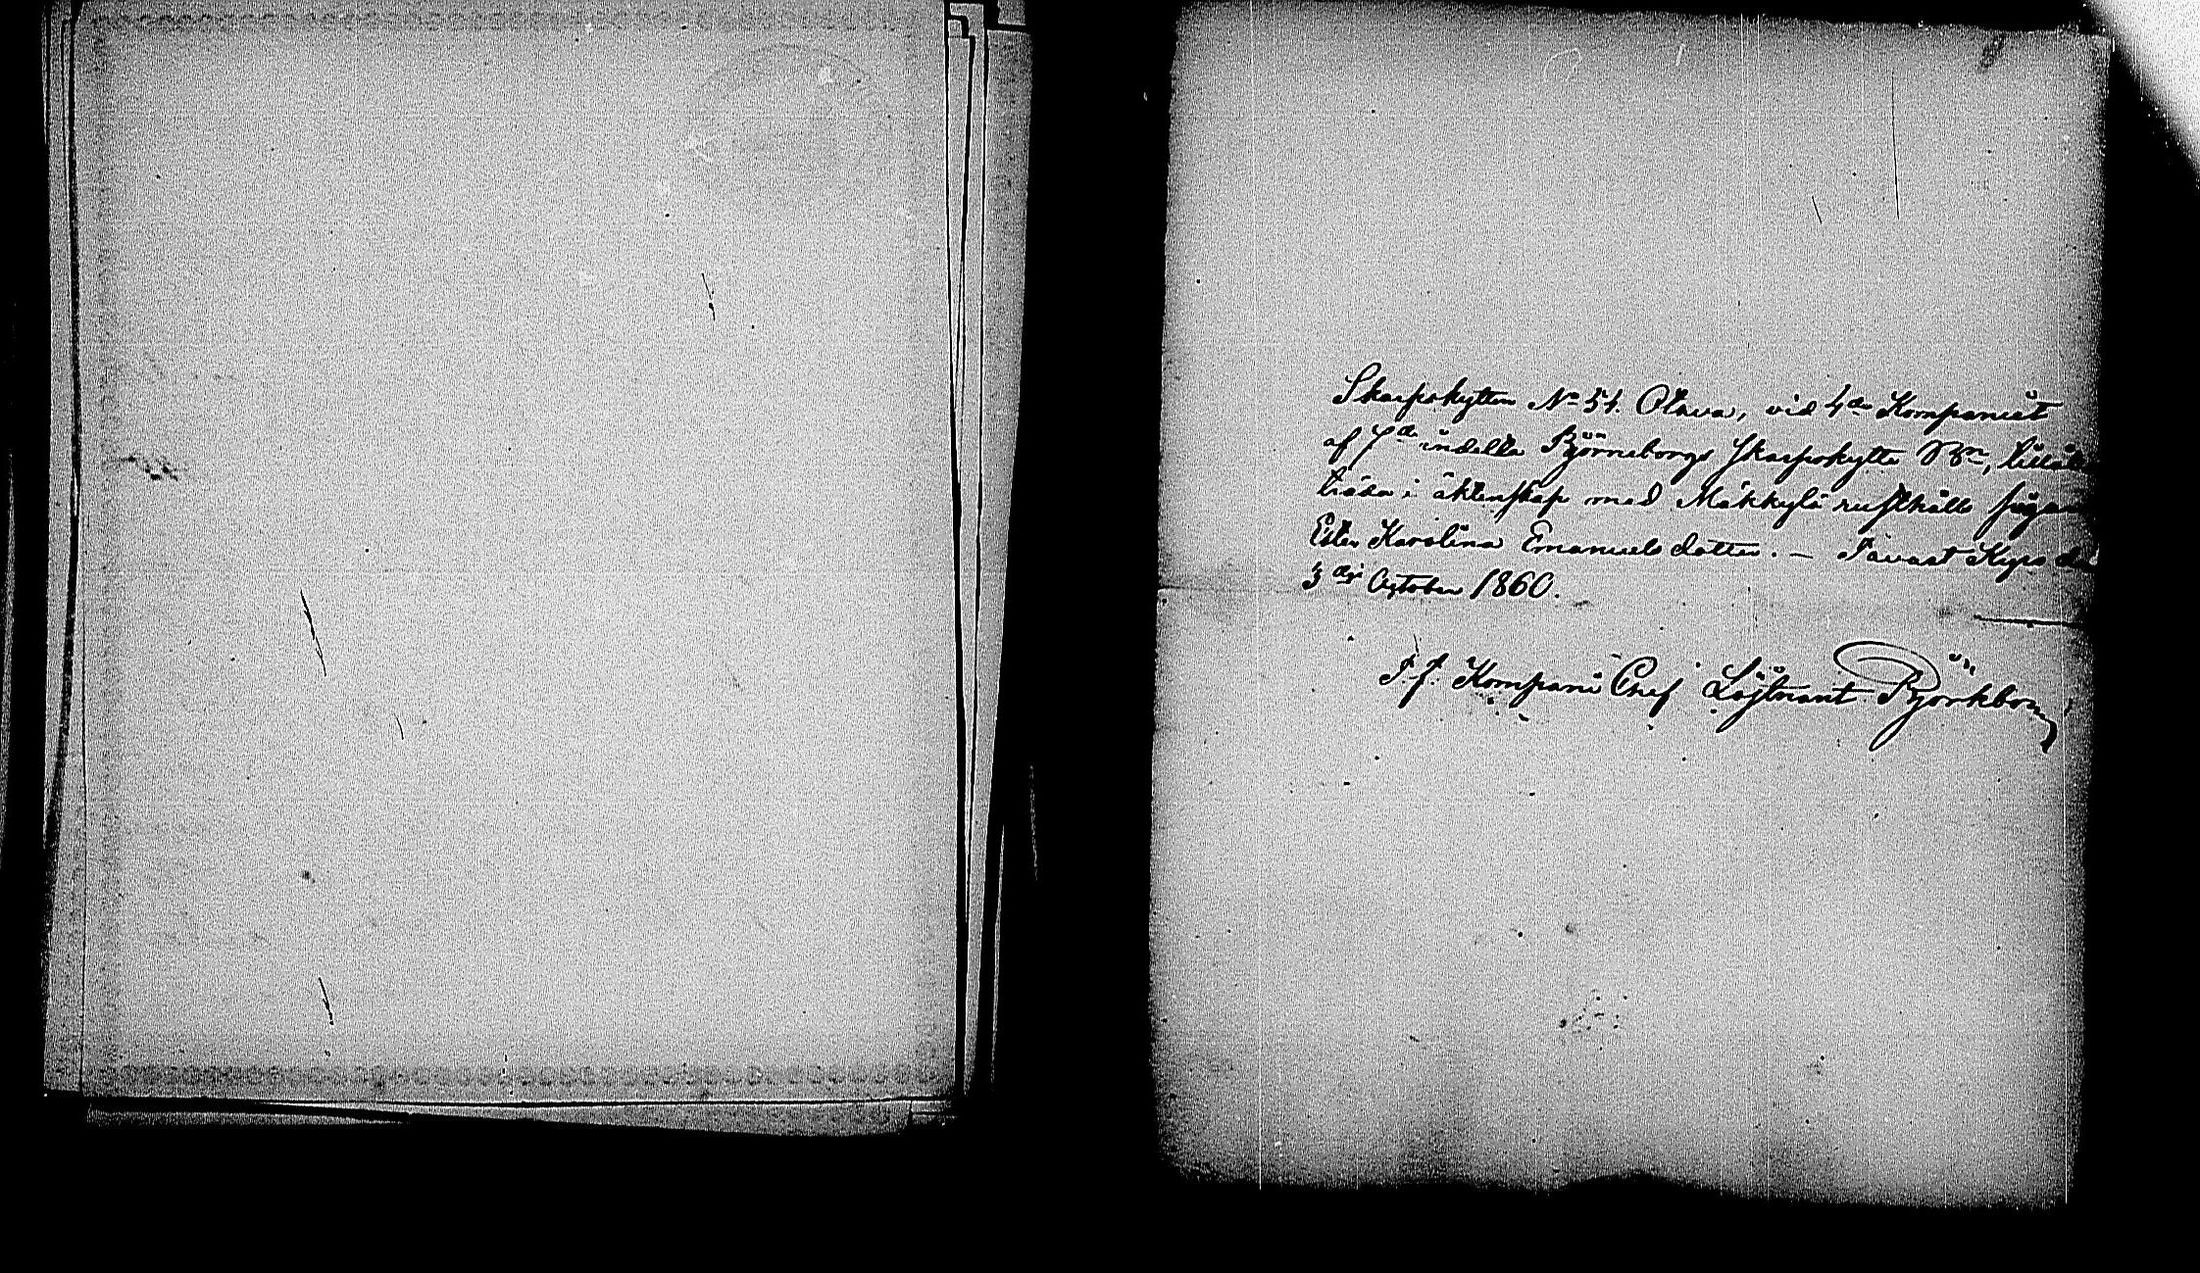 Skarpskytten No 51. Otava, vid 4de Kompaniet
af 7de indelta Björneborgs Skarpskytte Bn, tillåt
träda i äktenskap med Mäkkylä rusthålls
Karolina Emanuels dotter. — Tavast Kyro den
3dje October 1860.
T. f. Kompani Chef Löjtnant Björkbom